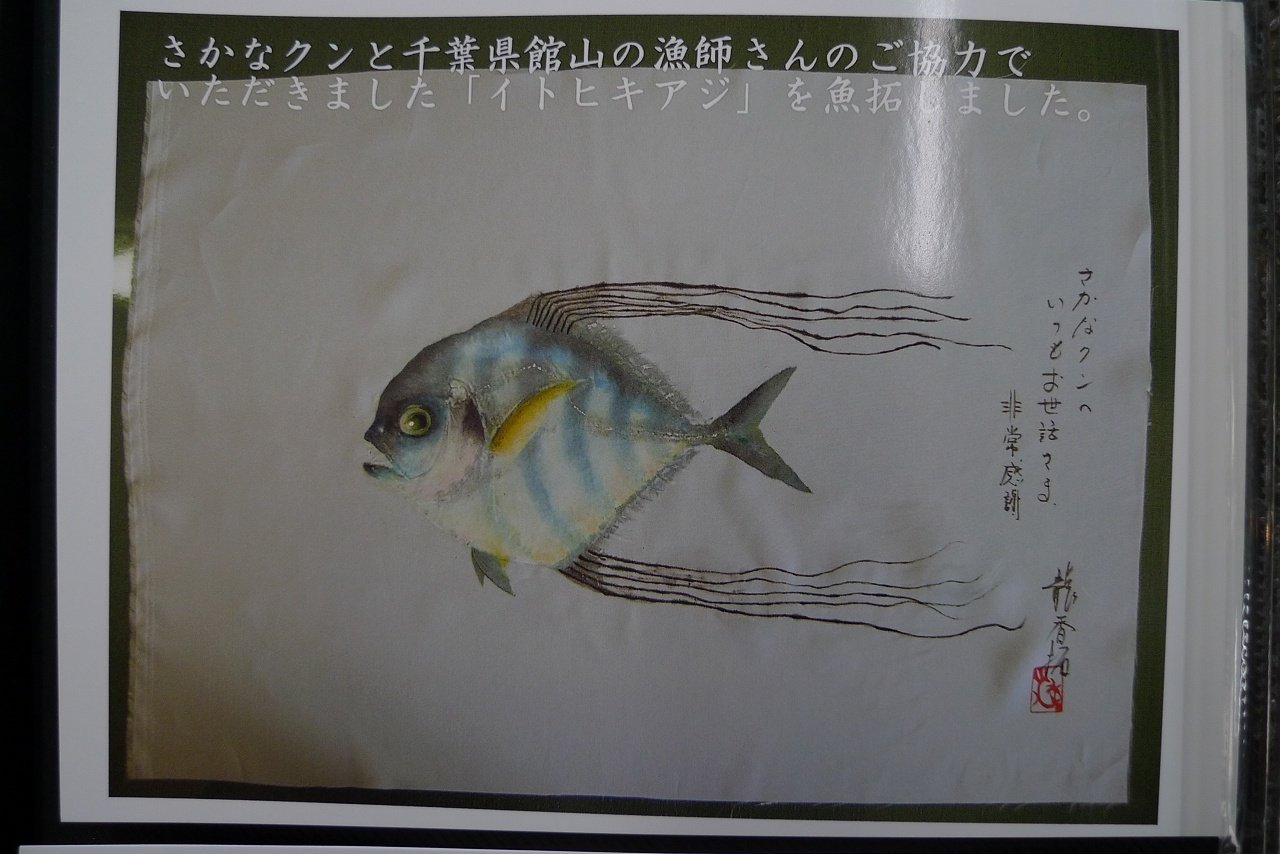 さかなクンと千葉県館山の漁師さんのご協力で
いただきました「イトヒキアジ」を魚拓しました。
さかなクンへ
いつもお世話さま
非常感謝
龍香拓